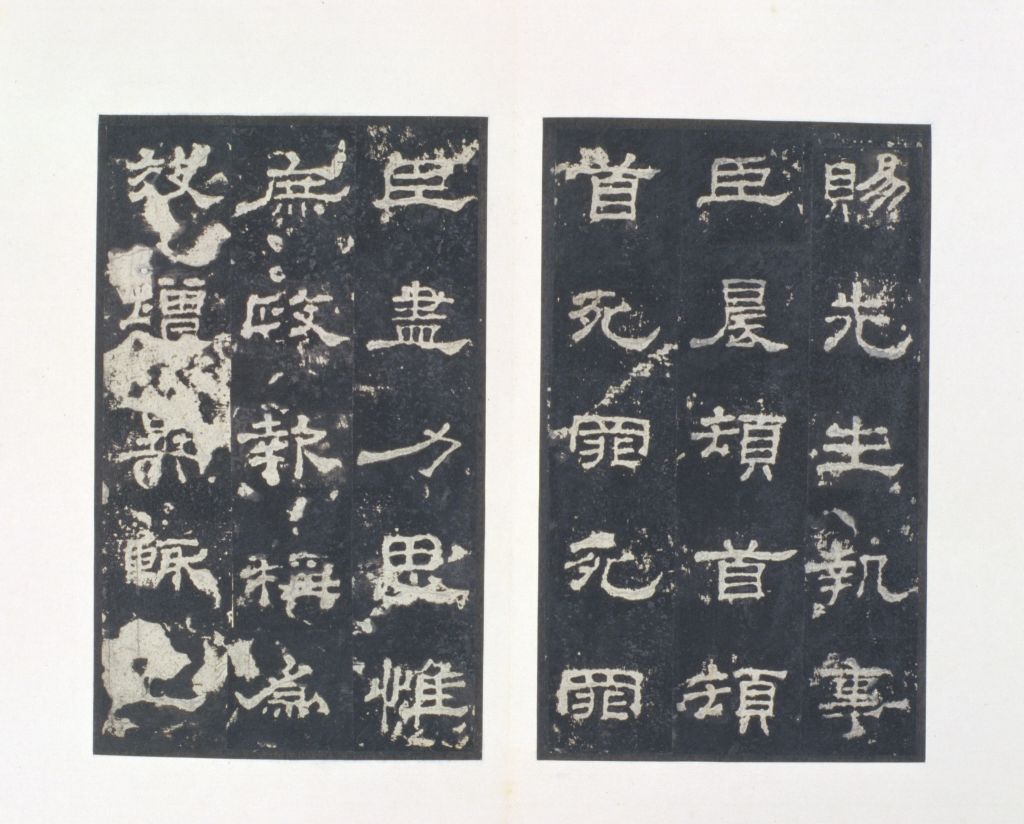 賜先生執事
臣晨頓首頓
首死罪死罪
臣盡力思惟
庶政報稱爲
效增異輒上